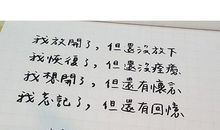 我放開了，但還沒放下
我恢復了，但還沒痊癒
我想開了，但還有懷念
我忘記了，但還有回憶